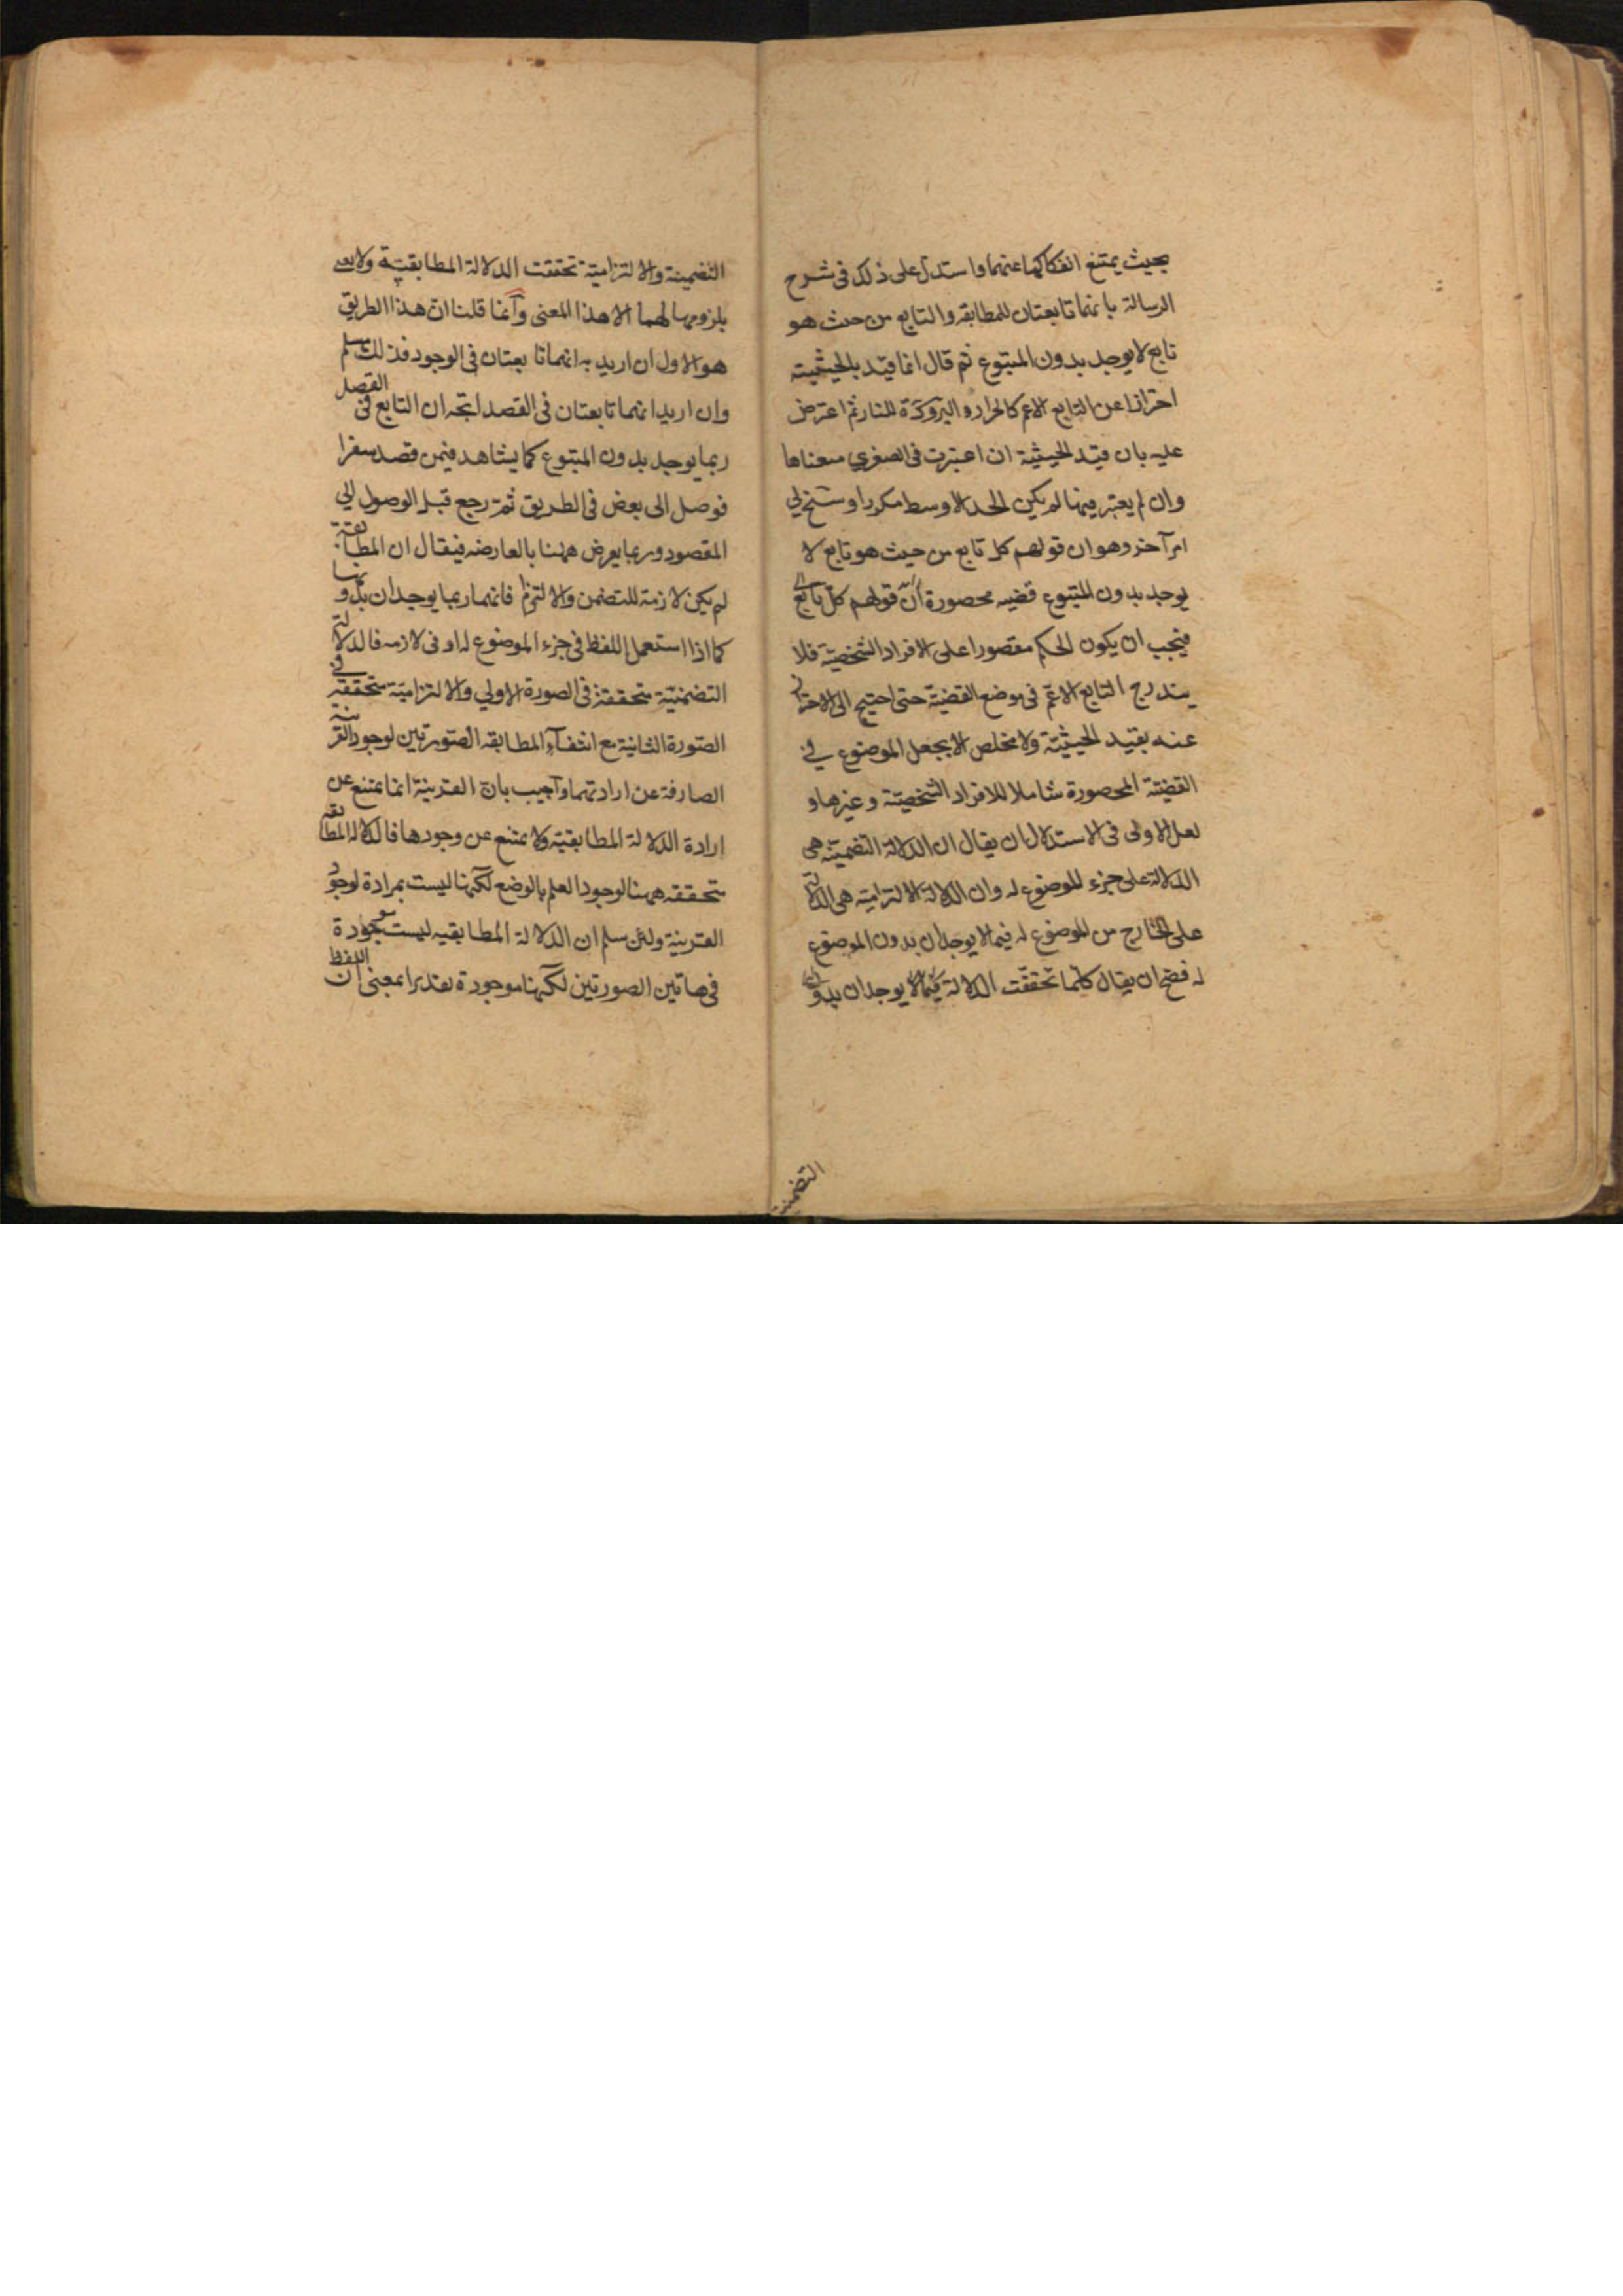 بحيث يمتنع انفكاكهما عنهما واستدل على ذلك في شرح
الرسالة بانهما تابعتان للمطابقه والتابع من حيث هو
تابع لا يوجد بدون المتبوع ثم قال انما قيّد بالحيثيته
احترازا عن التابع الاعم كالحرارة والبرودة للنار ثم اعترض
عليه بان قيّد الحيثيّة ان اعتبرت في الصغرى منعناها
وان لم يعتبر فيها لم يكن الحد الاوسط مكررا وسنح لي
امر آخر وهو ان قولهم كل تابع من حيث هو تابع لا
يوجد بدون المتبوع قضيه محصورة لان قولهم كل تابع
فيجب ان يكون الحكم مقصورا على الافراد الشخصيّة فلا
يندرج التابع الاعمّ في موضع القضيّة حتى احتيج الى الاحتراز
عنه بقيد الحيثيّة ولا مخلص الا بجعل الموضوع في
القضيّة المحصورة شاملا للافراد الشخصيّة وغيرها و
لعل الاولى في الاستدلال ان يقال ان الدلالة التضمنيّة هى
الدلالة على جزء الموضوع له وان الدلالة الالتزاميّة هى الدلالة
على الخارج من الموضوع له فهما لا يوجدان بدون الموضوع
له فصح ان يقال كلّما تحققت الدلالة فهما لا يوجدان بدون
التضمنية
التضمنية والالتزاميّة تحققت الدلالة المطابقيّة ولا
يلزومها لهما الا هذا المعنى وانما قلنا انّ هذا الطريق
هو الاول ان اريد به انهما تابعتان في الوجود فذلك مسلم
وان اريد انهما تابعتان في القصد اتجه ان التابع في القصد
ربما يوجد بدون المتبوع كما يشاهد فيمن قصد سفرا
فوصل الى بعض في الطريق ثمّ رجع قبل الوصول الى
المقصود وربما يعرض ههنا بالعارضه فيقال ان المطابقة
لم يكن لازمة للتضمن والالتزام فانهما ربما يوجدان بدونها
كما اذا استعمل اللفظ في جزء الموضوع له او في لازمه فالدلالة
التضمنيّة متحققة في الصورة الاولي والالتزاميّة متحققة في
الصّورة الثانية مع انتفاء المطابقه الصّورتين لوجود القرينة
الصارفة عن ارادتهما وآجيب بانّ القرينة انما تمتنع عن
ارادة الدلالة المطابقيّة ولا يمتنع عن وجودها فالدلالة المطابقة
متحققه ههنا لوجود العلم بالوضع لكنها ليست بمرادة لوجود
القرينة ولئن سلم ان الدلالة المطابقيه ليست موجودة
في هاتين الصورتين لكنها موجودة تقديرا بمعنى ان اللفظ